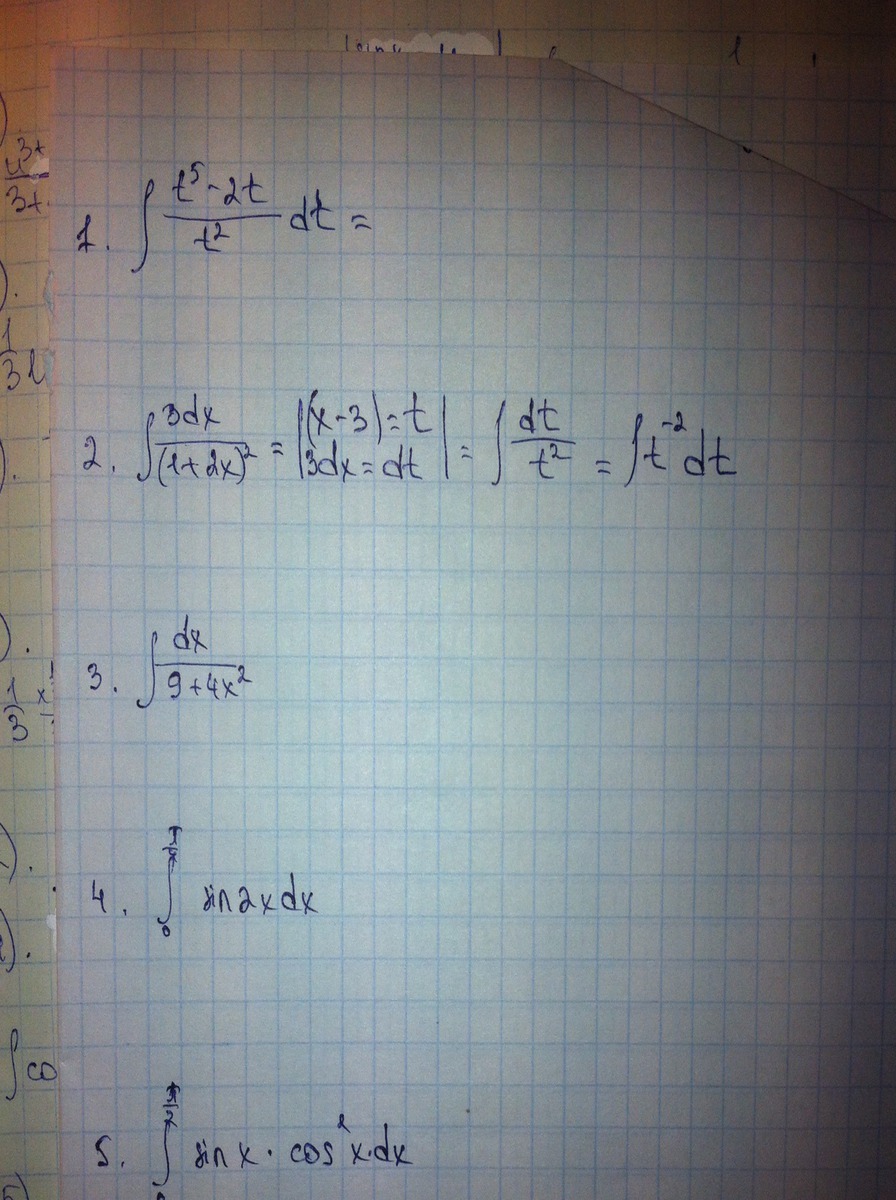 1. ∫ (t⁵ - 2t)/t² dt =
2. ∫ 3dx/(1+2x)² = |(x-3)=t 3dx=dt| = ∫ dt/t² = ∫ t⁻² dt
3. ∫ dx/(9+4x²)
4. ∫₀ sin2xdx
5. ∫ sin x · cos²x·dx